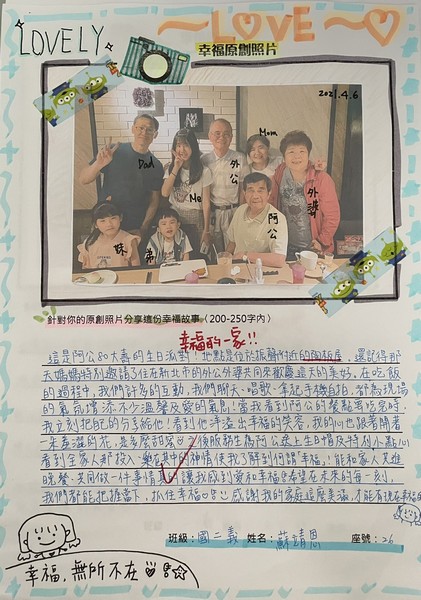 LOVELY
~LOVE~♡
幸福原創照片
2021.4.6
Dad
Me
外公
Mom
外婆
妹
弟
阿公
針對你的原創照片分享這份幸福故事（200-250字內）
幸福的一家!!
這是阿公80大壽的生日派對！地點是位於振聲附近的陶板屋，還記得那
天媽媽特別邀請了住在新北市的外公外婆共同來歡慶這天的美好，在吃飯
的過程中，我們許多的互動，我們聊天、唱歌、拿起手機自拍，都為現場
的氣氛增添不少溫馨及愛的氣息！當我看到阿公的餐點要吃完時，
我立刻把自己的分享給他！看到他洋溢出幸福的笑容，我的心也跟著開
一朵燦爛的花，是多麼甜蜜♡服務生為阿公送上生日帽及特別小點
看到全家人那投入、樂在其中的神情使我了解到何謂「幸福」！能和家人共進
晚餐、共同做一件事情，讓我感到愛和幸福，希望在未來的每一刻，
我們都能把握當下，抓住幸福 感謝我的家庭這麼美滿，才能有現在幸福的
班級：國二義 姓名：蘇靖恩 座號：26
幸福，無所不在♡